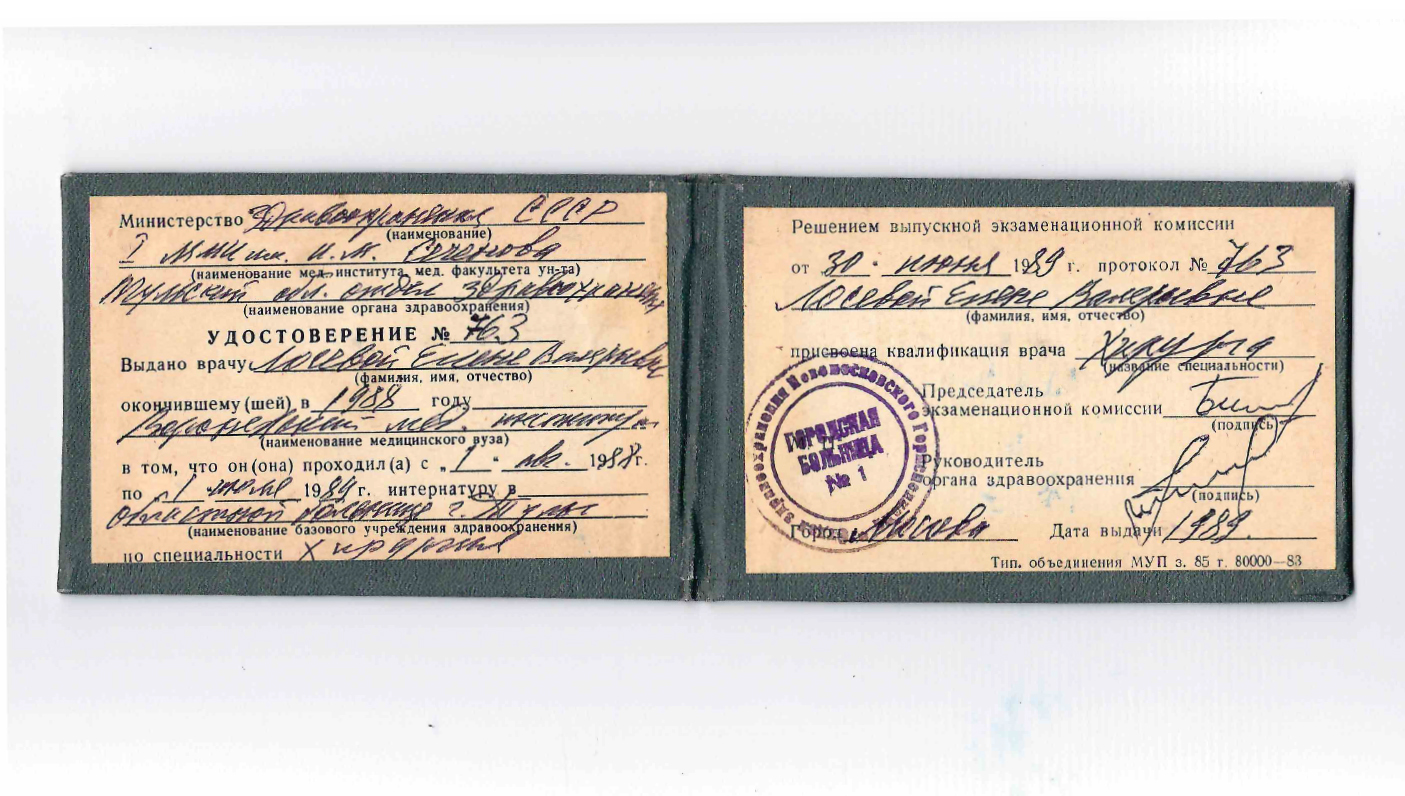 Министерство Здравоохранения СССР
(наименование)
I ММИ им. И. М. Сеченова
(наименование мед. института, мед. факультета ун-та)
Тульский обл. отдел здравоохранения
(наименование органа здравоохранения)
УДОСТОВЕРЕНИЕ № 763
Выдано врачу Лосевой Елене Валерьевне
(фамилия, имя, отчество)
окончившему (шей) в 1988 году
мед. институт
(наименование медицинского вуза)
в том, что он (она) проходил (а) с „1" авг. 1988 г.
по 1 июля 1989 г. интернатуру в
Областной больнице г. Тулы
(наименование базового учреждения здравоохранения)
по специальности Хирургия
Решением выпускной экзаменационной комиссии
от 30 июня 1989 г. протокол № 763
Лосевой Елене Валерьевне
(фамилия, имя, отчество)
присвоена квалификация врача Хирурга
(название специальности)
Председатель
экзаменационной комиссии
(подпись)
Руководитель
органа здравоохранения
(подпись)
Город Москва Дата выдачи 1989.
Тип. объединения МУП з. 85 т. 80000—83
здравоохранения Новомосковского Городского
ГОРОДСКАЯ
БОЛЬНИЦА
№ 1